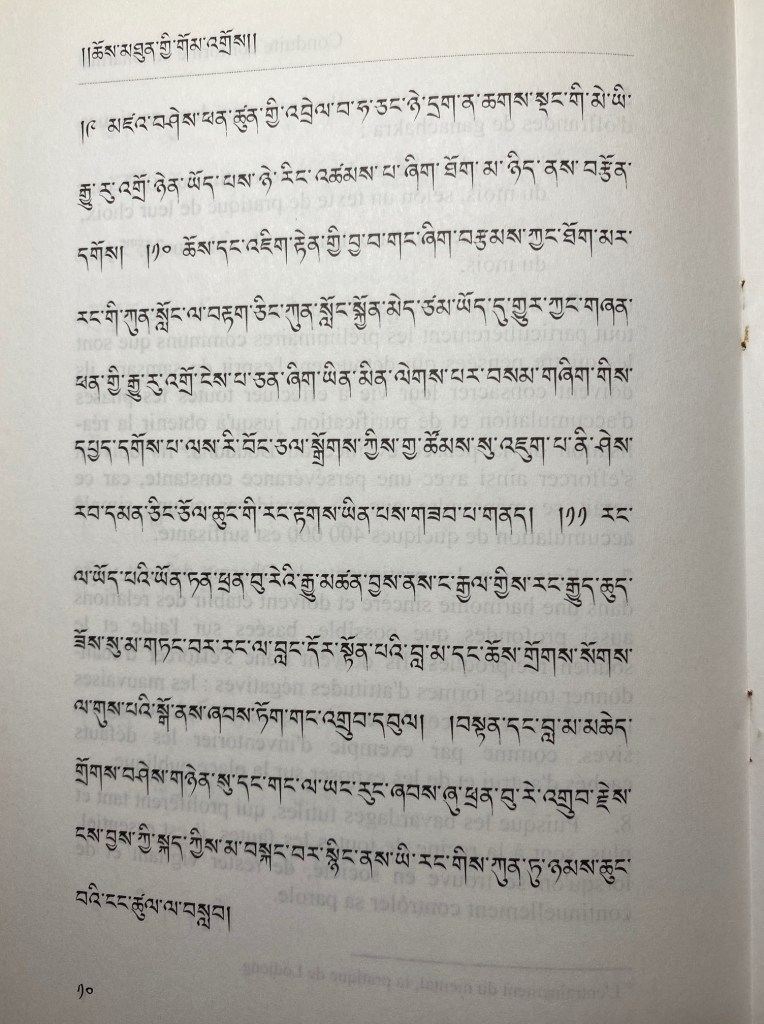 །།ཆོས་མཐུན་གྱི་གོམ་འགྲོས།།
།༩ མཛའ་བཤེས་ཕན་ཚུན་གྱི་འབྲེལ་བ་ཧ་ཅང་ཉེ་དྲག་ན་ཆགས་སྡང་གི་མེ་ཡི་
རྒྱུ་རུ་འགྲོ་ཉེན་ཡོད་པས་ཉེ་རིང་འཚམས་པ་ཞིག་ཐོག་མ་ཉིད་ནས་བརྩོན་
དགོས། །༡༠ ཆོས་དང་འཇིག་རྟེན་གྱི་བྱ་བ་གང་ཞིག་བརྩམས་ཀྱང་ཐོག་མར་
རང་གི་ཀུན་སློང་ལ་བརྟག་ཅིང་ཀུན་སློང་སྐྱོན་མེད་ཙམ་ཡོད་དུ་གྱུར་ཀྱང་གཞན་
ཕན་གྱི་རྒྱུ་རུ་འགྲོ་ངེས་པ་ཅན་ཞིག་ཡིན་མིན་ལེགས་པར་བསམ་གཞིག་གིས་
དཔྱད་དགོས་པ་ལས་རི་བོང་ཅལ་སྒྲོགས་ཀྱིས་གྱ་ཚོམས་སུ་འཇུག་པ་ནི་ཤེས་
རབ་དམན་ཅིང་ཅོལ་ཆུང་གི་རང་རྟགས་ཡིན་པས་གཟབ་པ་གནད། །༡༡ རང་
ལ་ཡོད་པའི་ཡོན་ཏན་ཕྲན་བུ་རེའི་རྒྱུ་མཚན་བྱས་ནས་ང་རྒྱལ་གྱིས་རང་རྒྱུད་ཆུད་
ཟོས་སུ་མ་གཏང་བར་རང་ལ་བླང་དོར་སྟོན་པའི་བླ་མ་དང་ཆོས་གྲོགས་སོགས་
ལ་གུས་པའི་སྒོ་ནས་ཞབས་ཏོག་གང་འགྲུབ་དབུལ། །བསྟན་དང་བླ་མ་མཆེད་
གྲོགས་བཤེས་གཉེན་སུ་དང་གང་ལ་ཡང་རུང་ཞབས་ཞུ་ཕྲན་བུ་རེ་འགྲུབ་རྗེས་
ངས་བྱས་ཀྱི་སྐད་ཀྱིས་མ་བསྐང་བར་སྙིང་ནས་ཡི་རང་གིས་ཀུན་ཏུ་ཉམས་ཆུང་
བའི་ངང་ཚུལ་ལ་བསླབ།
༡༠